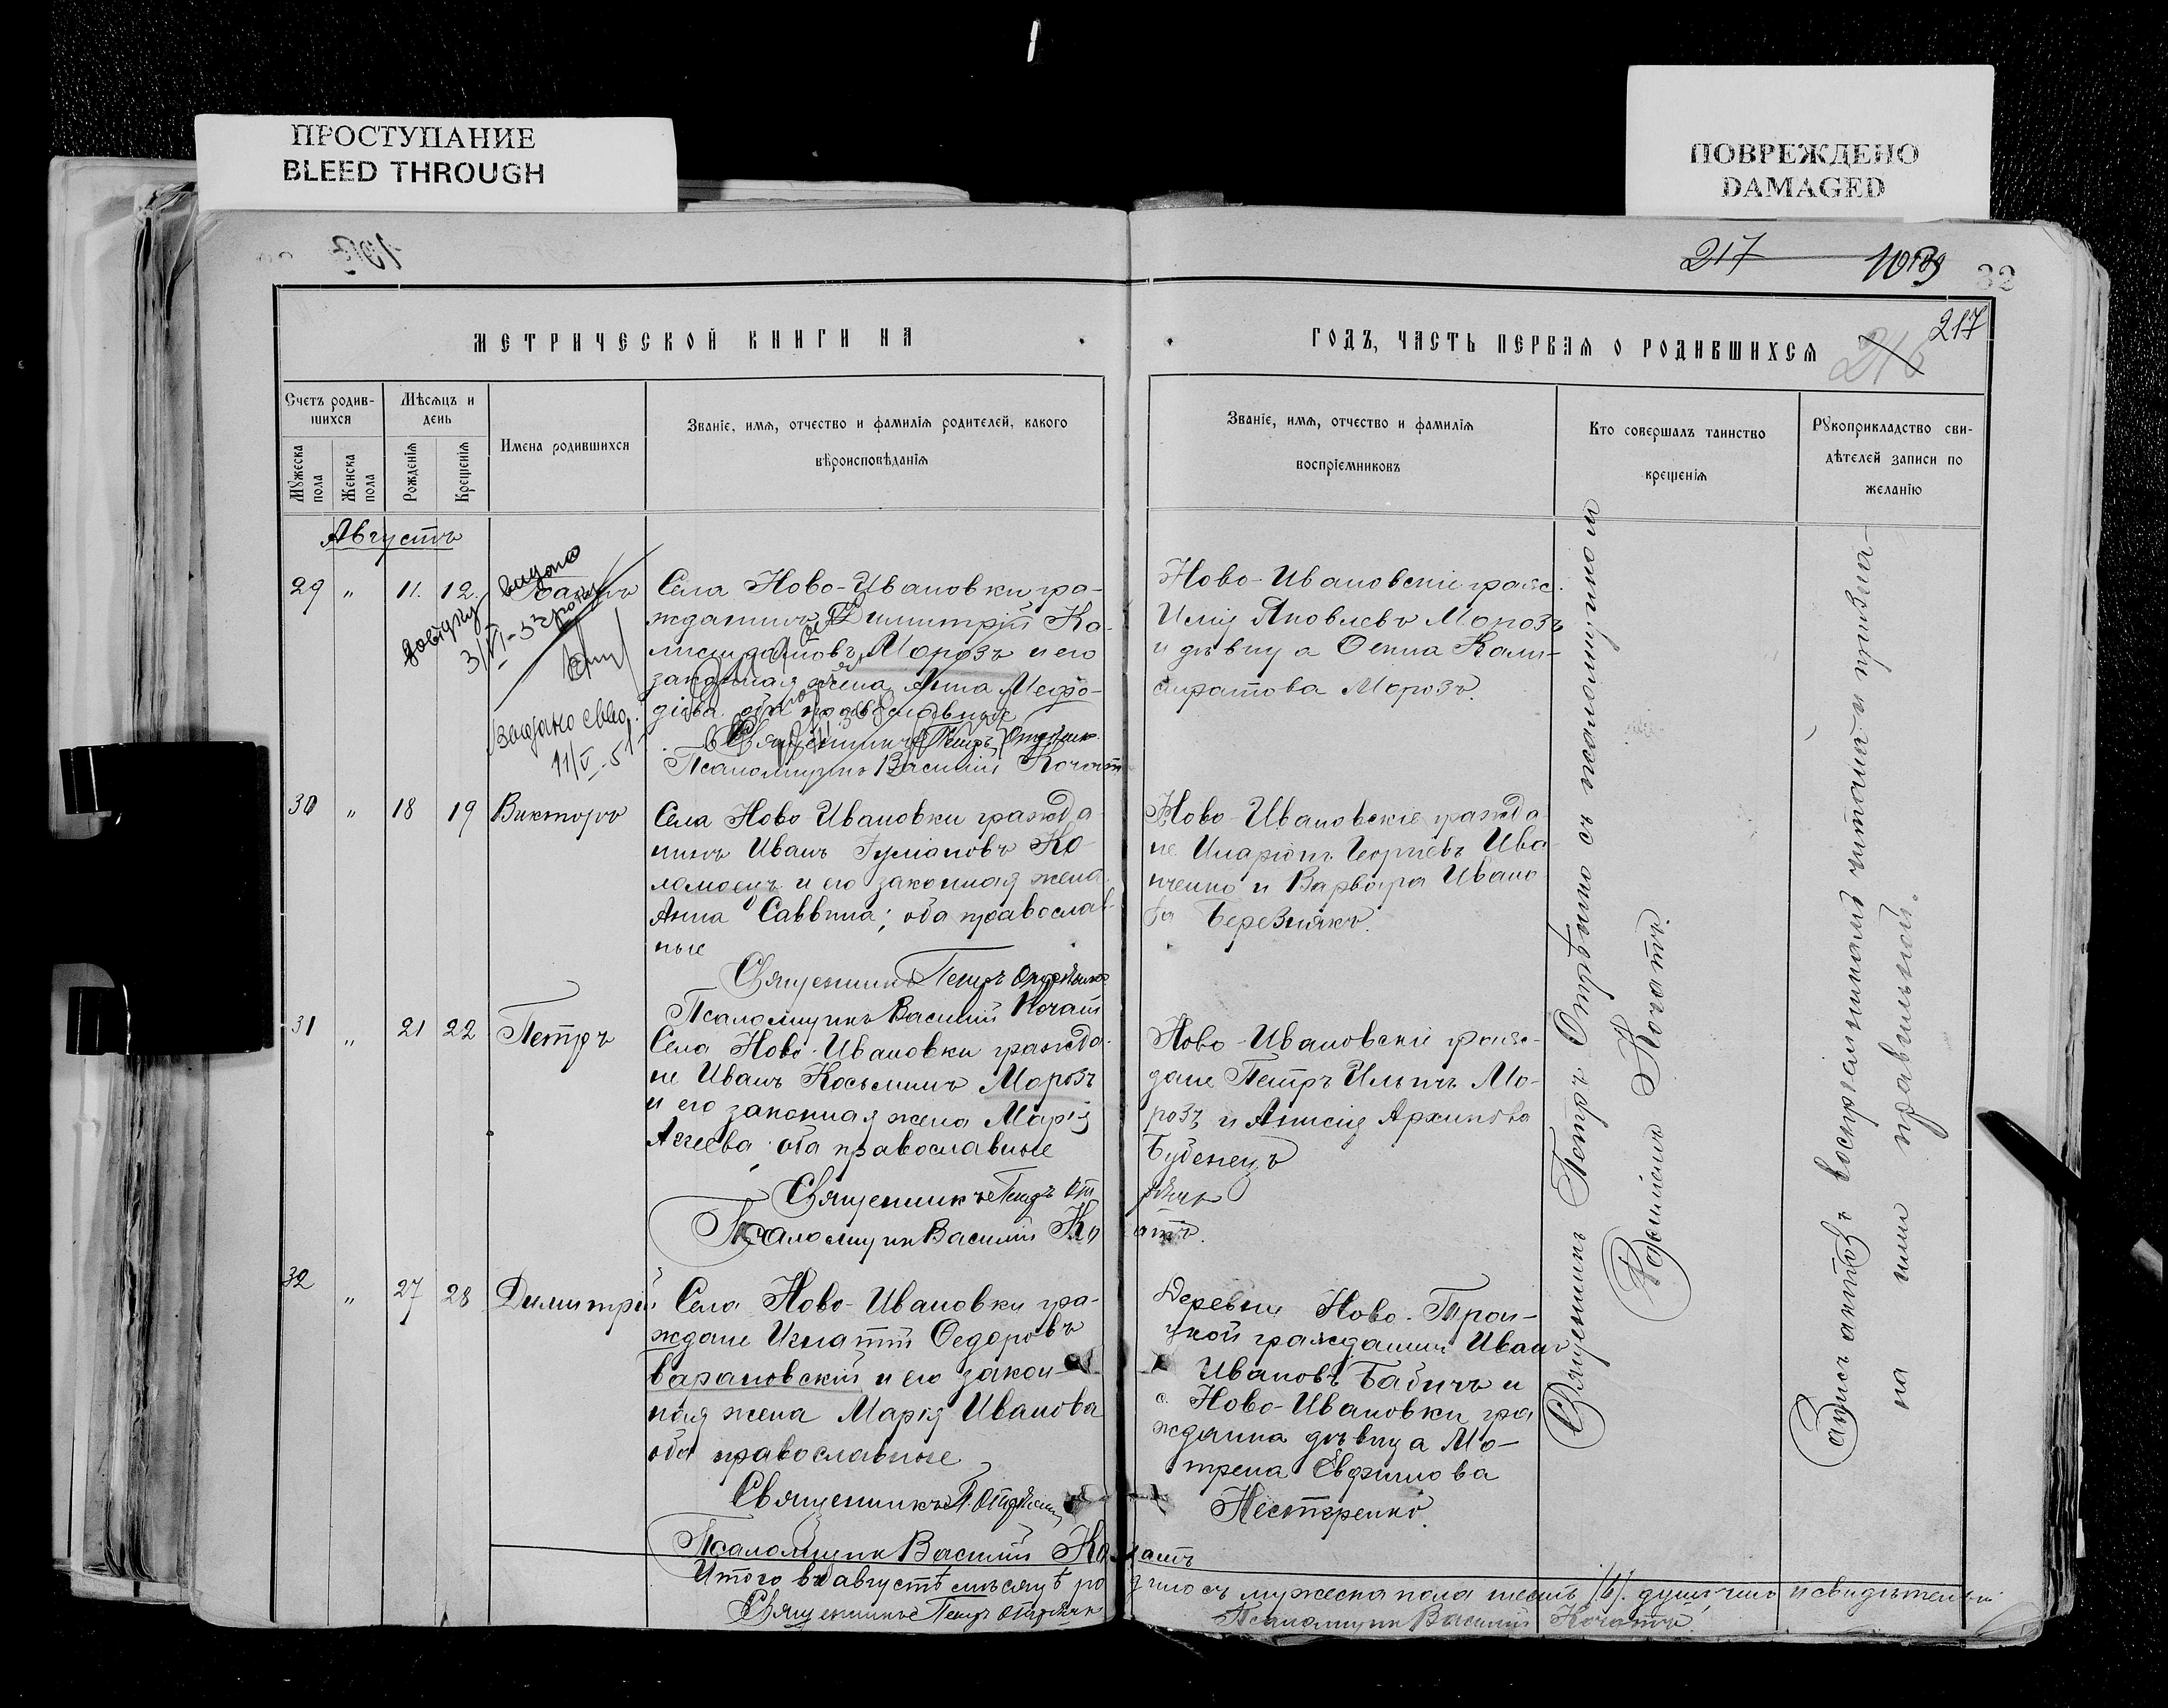 ПРОСТУПАНИЕ
BLEED THROUGH
ПОВРЕЖДЕНО
DAMAGED
217
32
217
216
МЕТРИЧЕСКОЙ КНИГИ НА
ГОДЪ, ЧАСТЬ ПЕРВАЯ О РОДИВШИХСЯ
Счетъ родив-
шихся
Мужеска
пола
Женска
пола
Мѣсяцъ и
день
Рожденія
Крещенія
Имена родившихся
Званіе, имя, отчество и фамилія родителей, какого
вѣроисповѣданія
Званіе, имя, отчество и фамилія
воспріемниковъ
Кто совершалъ таинство
крещенія
Рукоприкладство сви-
дѣтелей записи по
желанію
Августъ
29 " 11. 12.
видано
довідку
3/VI-53 року
Видано свид.
11/V-51
Села Ново-Ивановки гра-
жданинъ Димитрій Ка-
листратовъ Морозъ и его
законная жена Анна Мефо-
діева оба православные
Священникъ Петръ
Псаломщикъ Василій Кочатъ
Ново-Ивановскіе граж.
Илія Яковлевъ Морозъ
и дѣвица Кали-
стратова Морозъ.
30 " 18 19 Викторъ
Села Ново Ивановки гражда
нинъ Иванъ Ко-
ломоецъ и его законная жена
Анна Саввина; оба православ-
ные
Священникъ Петръ
Псаломщикъ Василій Кочатъ
Ново-Ивановскіе гражда
не Иларіонъ Георгіевъ Ива
нченко и Варвара Ивано
ва Березнякъ.
31 " 21 22 Петръ
Села Ново-Ивановки гражда-
не Иванъ Косьминъ Морозъ
и его законная жена Марія
Агеева оба православные
Священникъ Петръ
Псаломщикъ Василій Кочатъ.
Ново-Ивановскіе граж-
дане Петръ Ильичъ Мо-
розъ и Анисія Архипова
Буденецъ
32 " 27 28 Димитрій
Села Ново-Ивановки гра-
ждане Игнатій Федоровъ
Барановскій и его закон-
ная жена Марія Иванова
оба православные
Священникъ П.
Псаломщикъ Василій Кочатъ
Деревни Ново-Трои-
цкой гражданинъ Иванъ
Ивановъ Бабичъ и
с. Ново-Ивановки гра
жданка дѣвица Мо-
трена Евфимова
Нестеренко.
Священникъ Петръ съ псаломщикомъ
Василіемъ Кочатъ.
Запись актовъ воспріемниками читана и призна-
на ими правильной.
Итого въ августѣ мѣсяцѣ родилось мужеска пола шесть /6/. душъ, и свидѣтельст
Священникъ Петръ
Псаломщикъ Василій Кочатъ.